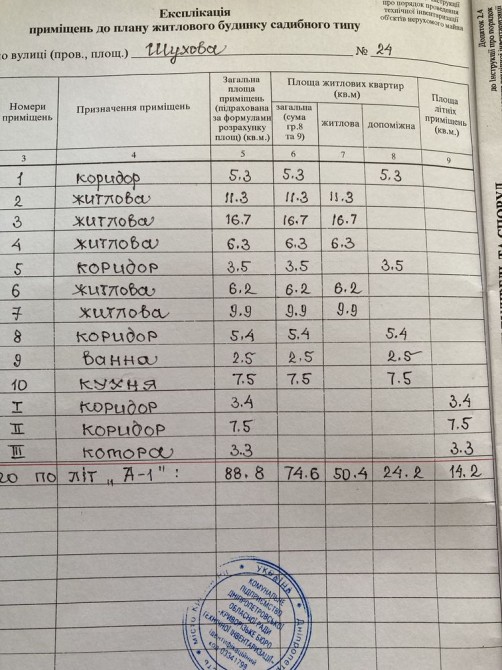 Експлікація
приміщень до плану житлового будинку садибного типу
по вулиці (пров., площ.) Шухова № 24
про порядок проведення
технічної інвентаризації
об'єктів нерухомого майна
Додаток 2.4
до Інструкції про порядок
Номери приміщень Призначення приміщень Загальна площа приміщень (підрахована за формулами розрахунку площ) (кв.м.) Площа житлових квартир (кв.м) Площа літніх приміщень (кв.м.)
загальна (сума гр.8 та 9) житлова допоміжна
3 4 5 6 7 8 9
1 коридор 5.3 5.3 5.3
2 житлова 11.3 11.3 11.3
3 житлова 16.7 16.7 16.7
4 житлова 6.3 6.3 6.3
5 коридор 3.5 3.5 3.5
6 житлова 6.2 6.2 6.2
7 житлова 9.9 9.9 9.9
8 коридор 5.4 5.4 5.4
9 ванна 2.5 2.5 2.5
10 кухня 7.5 7.5 7.5
I коридор 3.4 3.4
II коридор 7.5 7.5
III котора 3.3 3.3
го по літ „А-1": 88.8 74.6 50.4 24.2 14.2
УКРАЇНА
КОМУНАЛЬНЕ
ПІДПРИЄМСТВО
ДНІПРОПЕТРОВСЬКОЇ
ОБЛАСНОЇ РАДИ
«КРИВОРІЗЬКЕ БЮРО
ТЕХНІЧНОЇ ІНВЕНТАРИЗАЦІЇ»